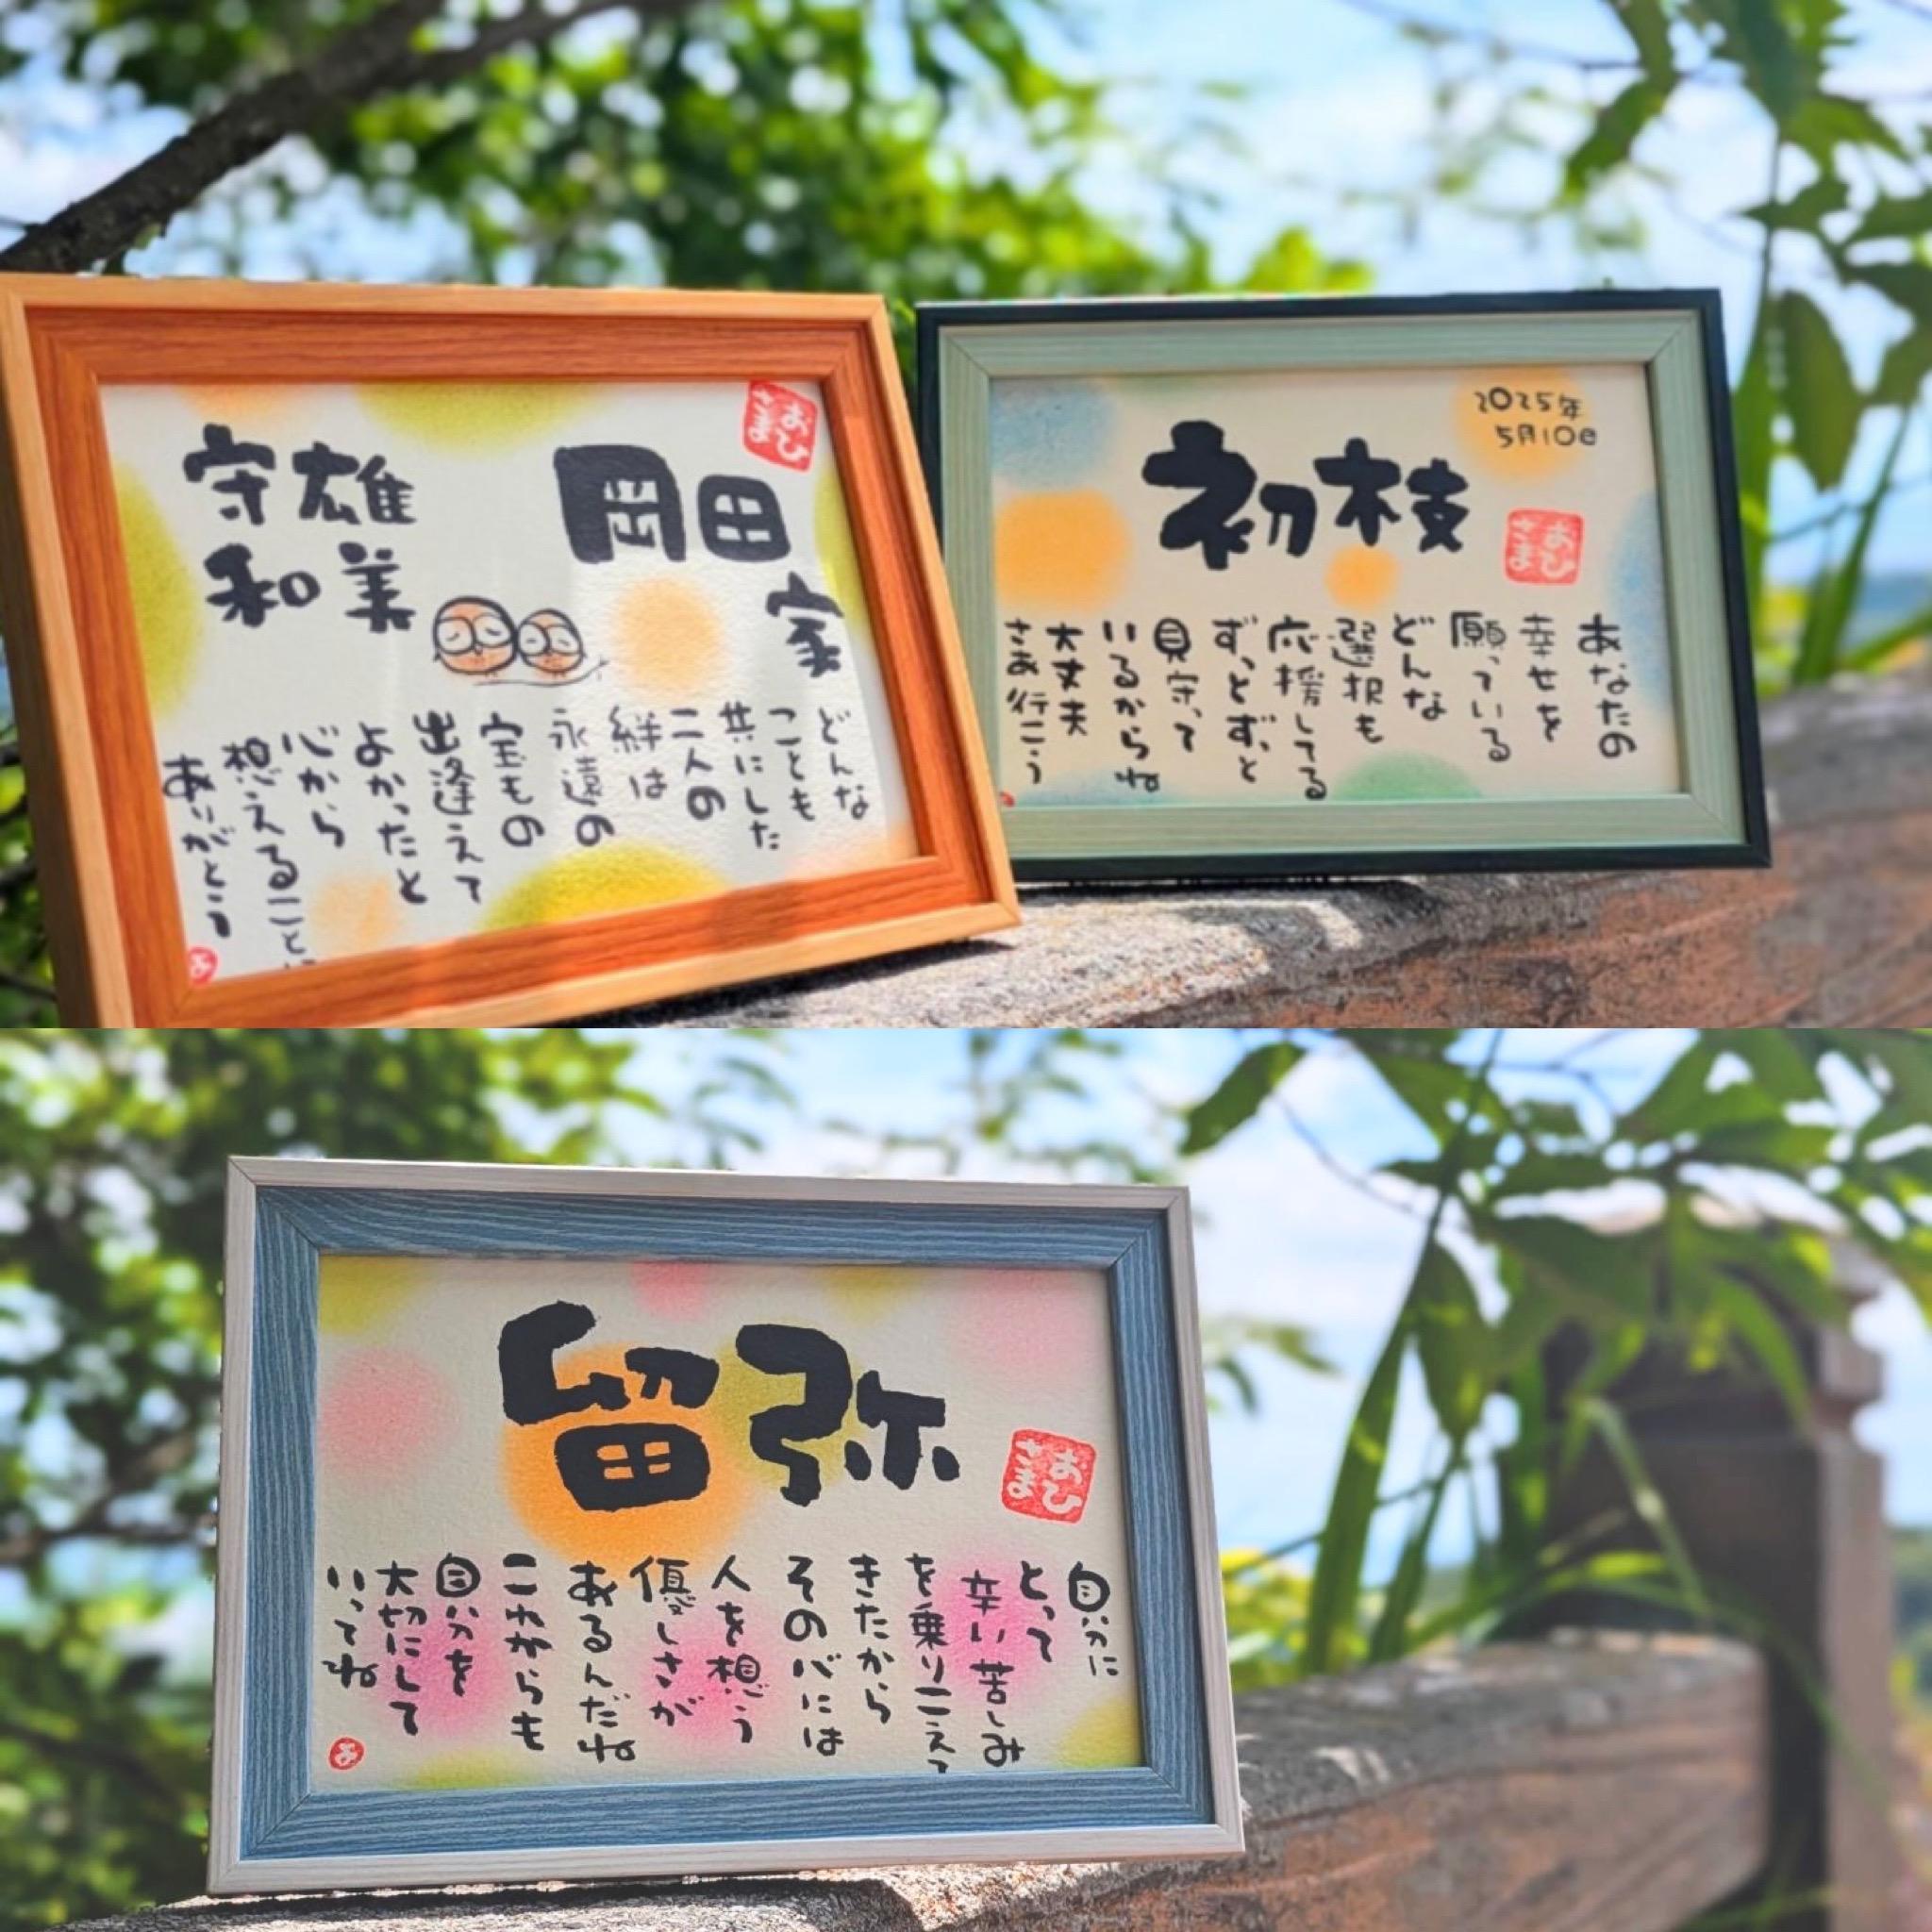 岡田
家
守雄
和美
おひ
さま
どんな
ことも
共にした
二人の
絆は
永遠の
宝もの
出逢えて
よかったと
心から
想えることに
ありがとう
2025年
5月10日
初枝
おひ
さま
あなたの
幸せを
願っている
どんな
選択も
応援してる
ずっとずっと
見守って
いるからね
大丈夫
さあ行こう
留弥
おひ
さま
自分に
とって
辛い苦しみ
を乗りこえて
きたから
その心には
人を想う
優しさが
あるんだね
これからも
自分を
大切にして
いってね